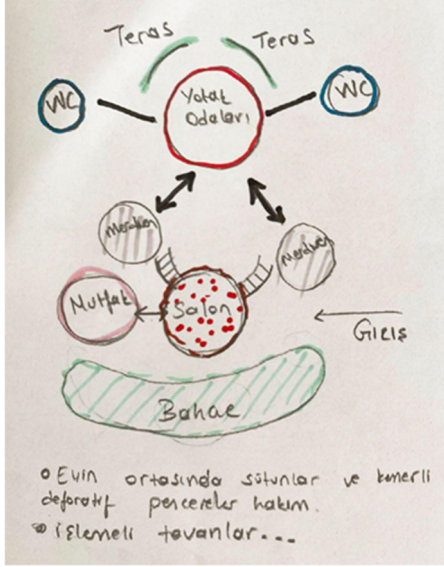 Teras Teras
WC Yatak WC
Odaları
Merdiven Merdiven
Mutfak Salon
GİRİŞ
Bahçe
o Evin ortasında sütunlar ve kemerli
deforatif percereler hakim.
o işlemeli tavanlar...